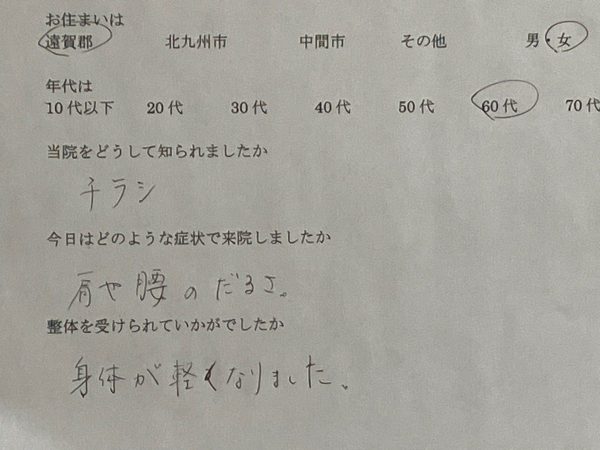 お住まいは
遠賀郡 北九州市 中間市 その他 男・女
年代は
10代以下 20代 30代 40代 50代 60代 70代
当院をどうして知られましたか
チラシ
今日はどのような症状で来院しましたか
肩や腰のだるさ。
整体を受けられていかがでしたか
身体が軽くなりました。